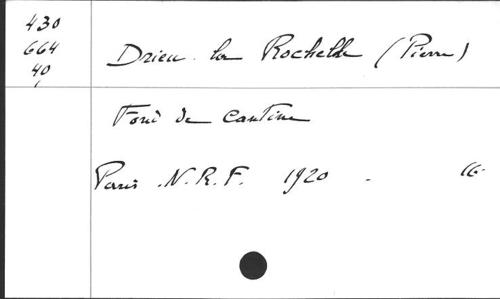 430
664
40
Drieu la Rochelle (Pierre)
Fond de Cantine
Paris N.R.F. 1920 - 16